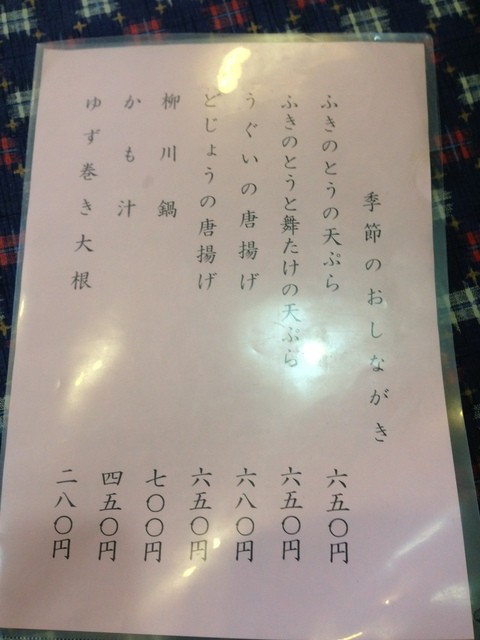 季節のおしながき
ふきのとうの天ぷら 六五〇円
ふきのとうと舞たけの天ぷら 六五〇円
うぐいの唐揚げ 六八〇円
どじょうの唐揚げ 六五〇円
柳川鍋 七〇〇円
かも汁 四五〇円
ゆず巻き大根 二八〇円